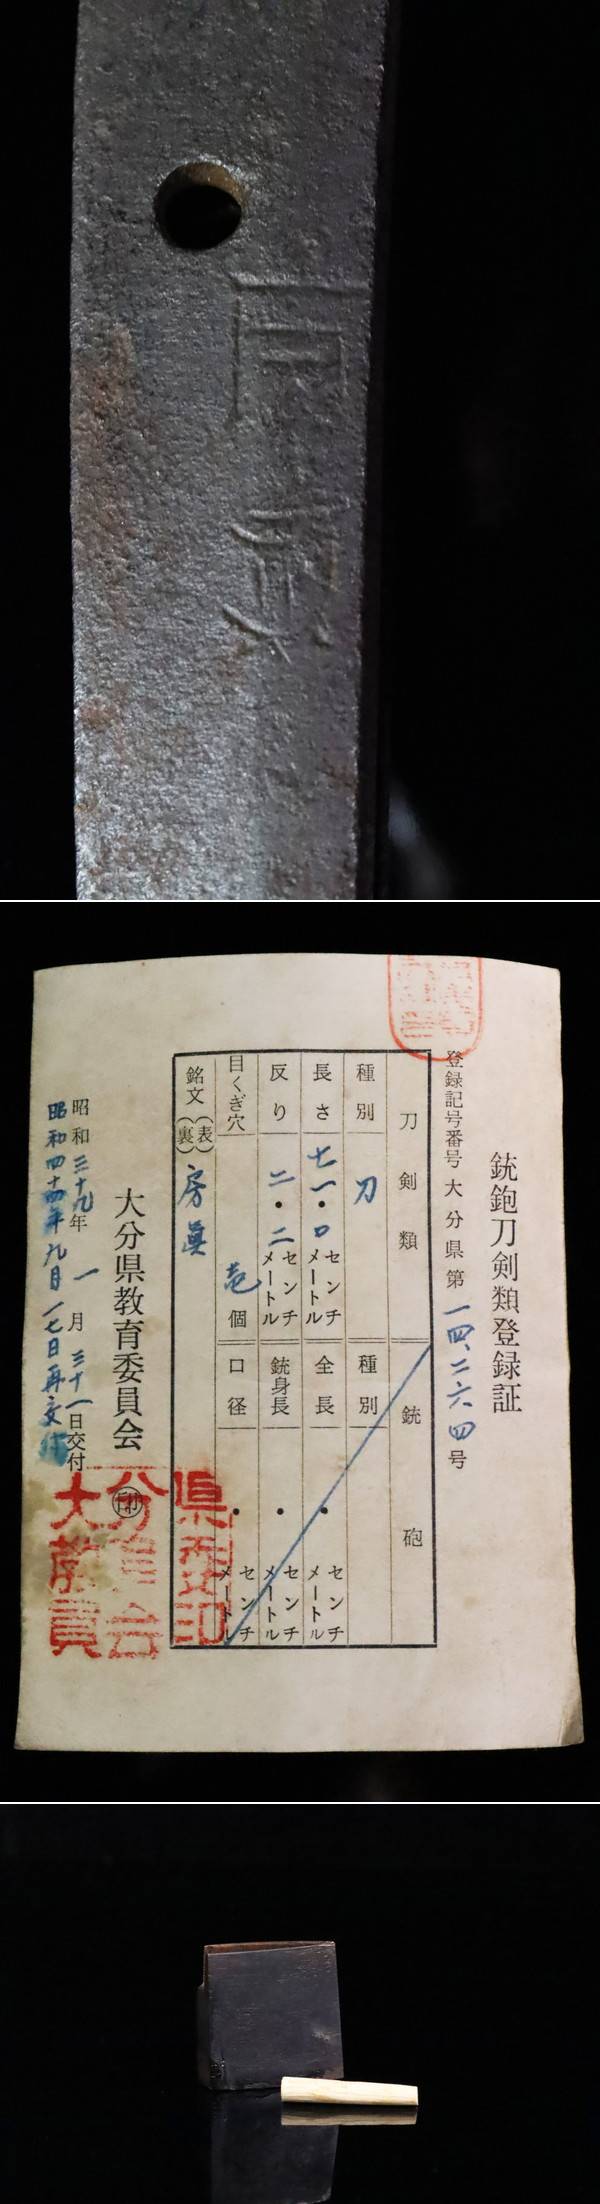 房眞
銃鉋刀剣類登録証
登録記号番号 大分県 第一四二六四号
刀剣類
銃砲
種別 刀
種別
長さ 七一・〇 センチメートル
全長 ・ センチメートル
反り 二・二 センチメートル
銃身長 ・ センチメートル
目くぎ穴 壱個
口径 ・ センチメートル
銘文(表)(裏) 房眞
大分県教育委員会 印
昭和三十九年一月三十一日交付
昭和四十四年九月一七日再交付